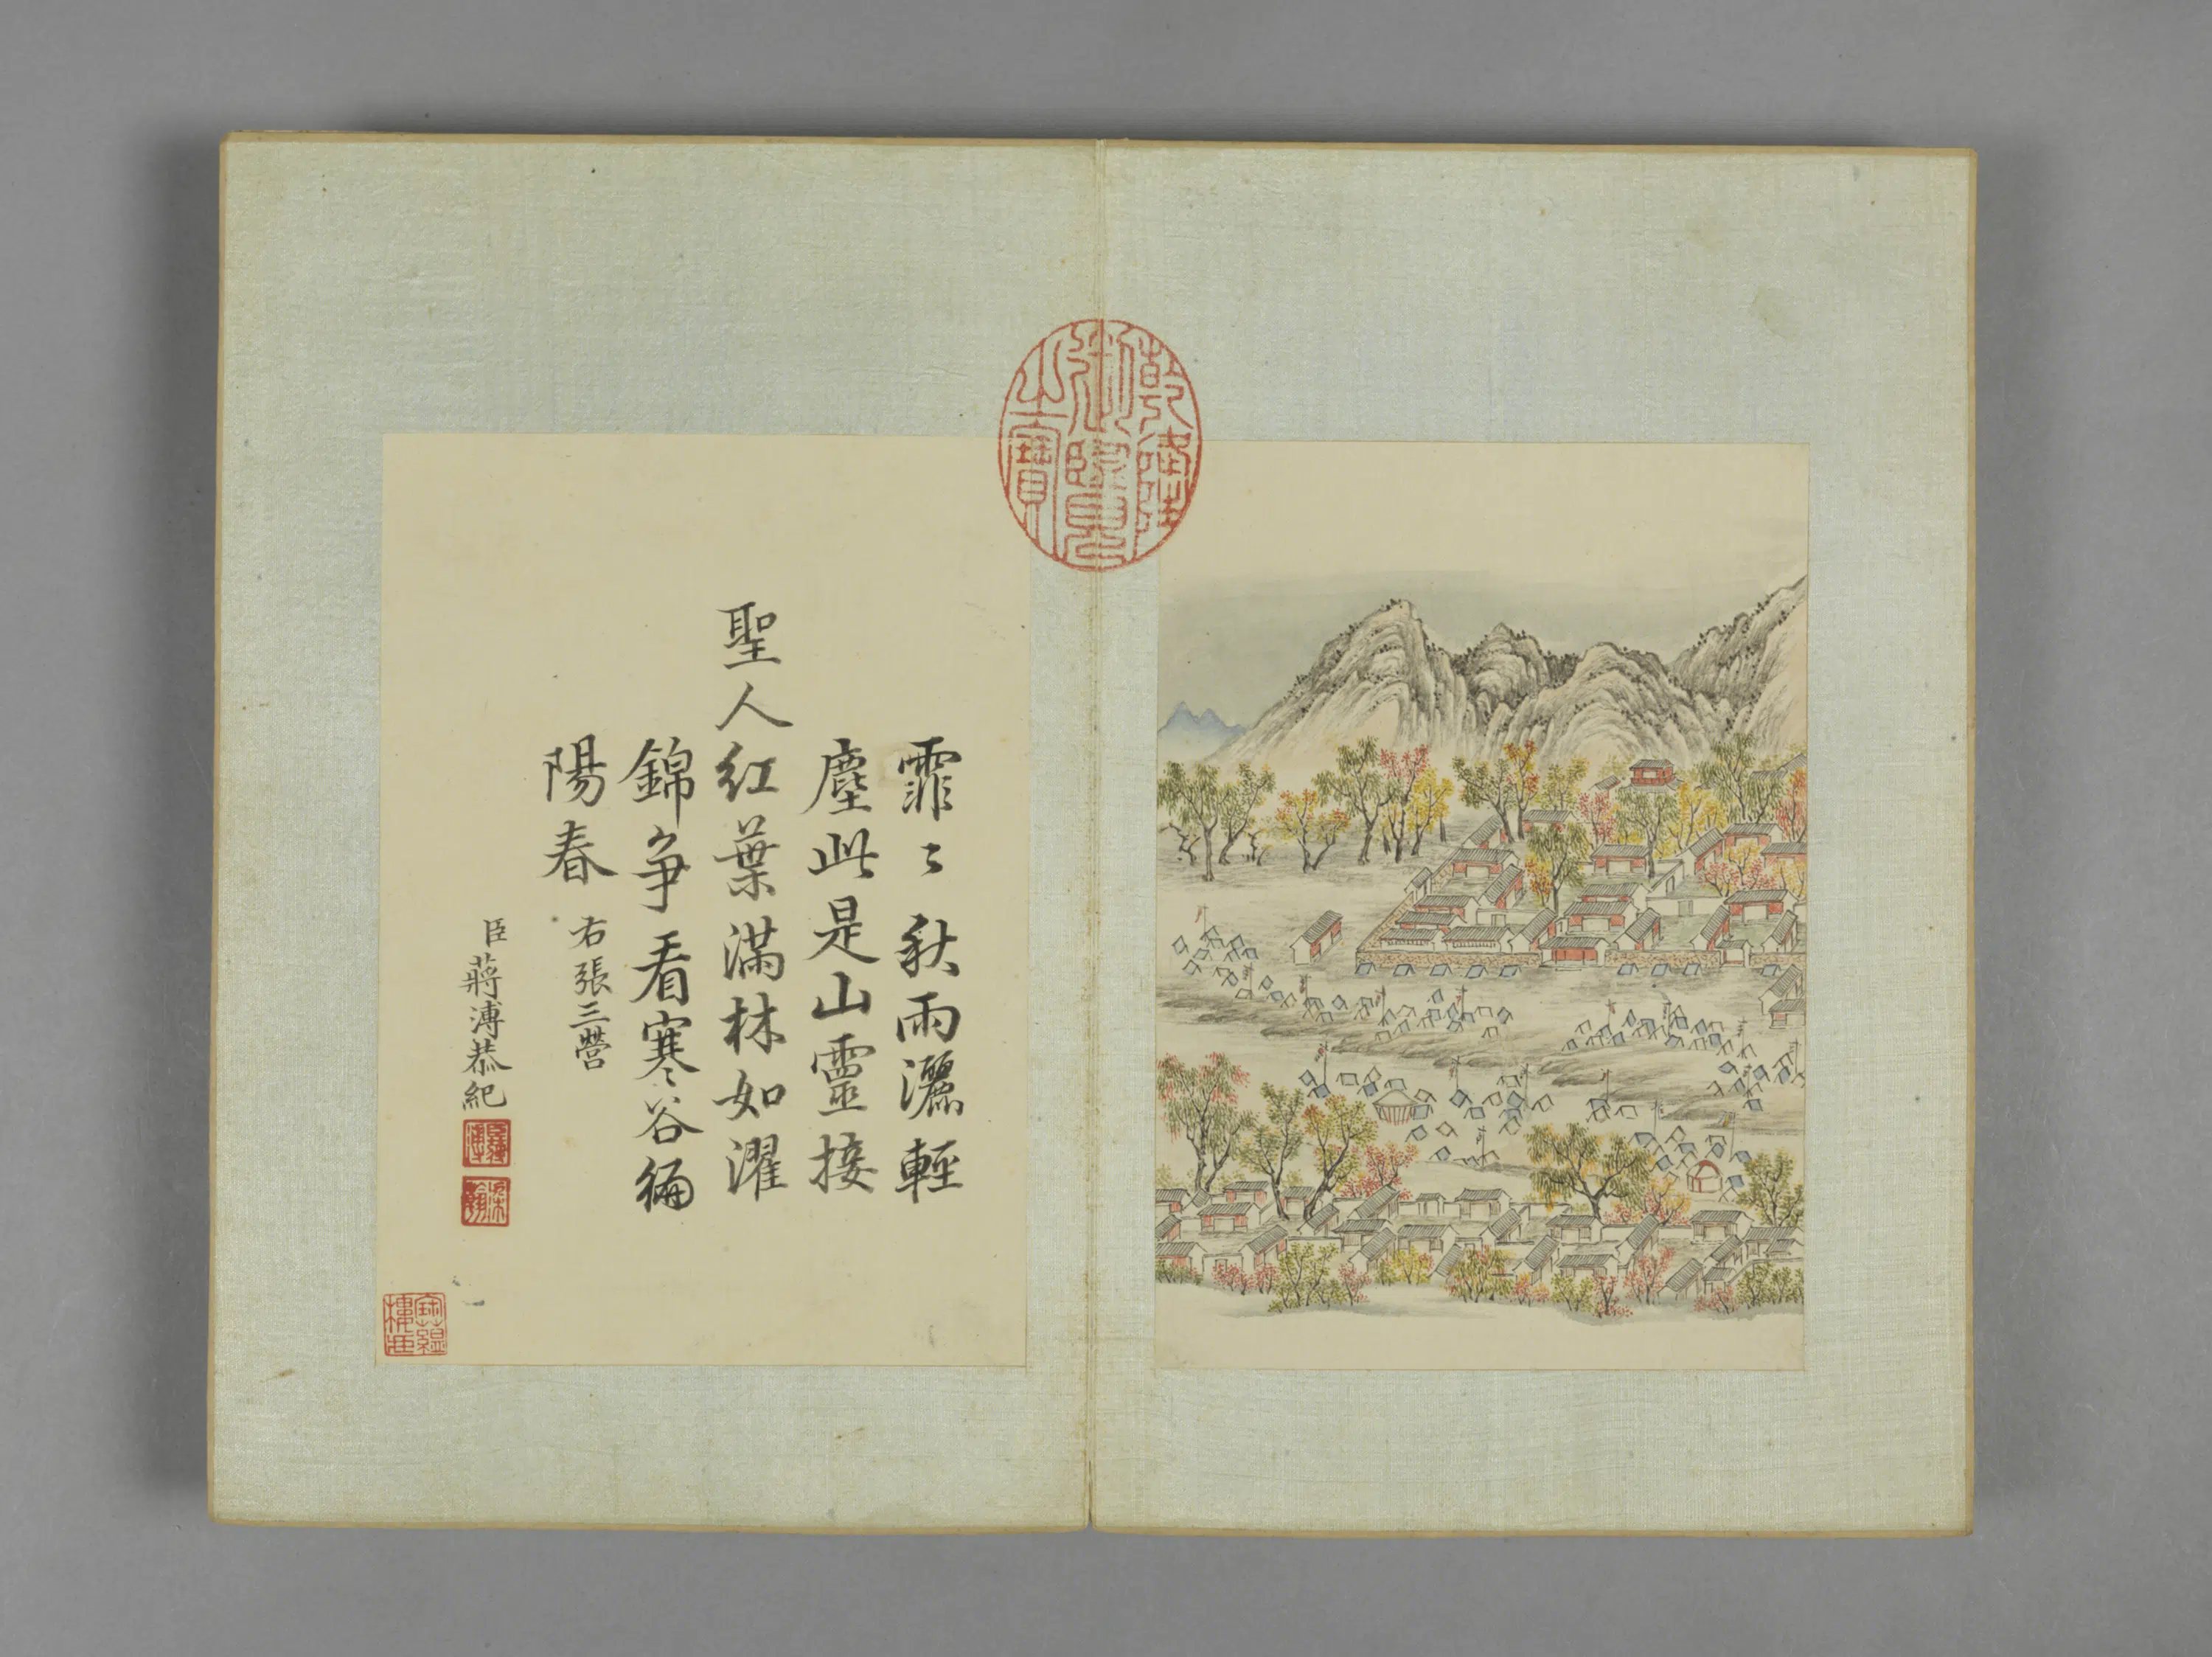 乾隆御覽之寶
霏〻秋雨灑輕
塵此是山靈接
聖人紅葉滿林如濯
錦争看寒谷徧
陽春
右張三營
臣蔣溥恭紀
臣蔣溥